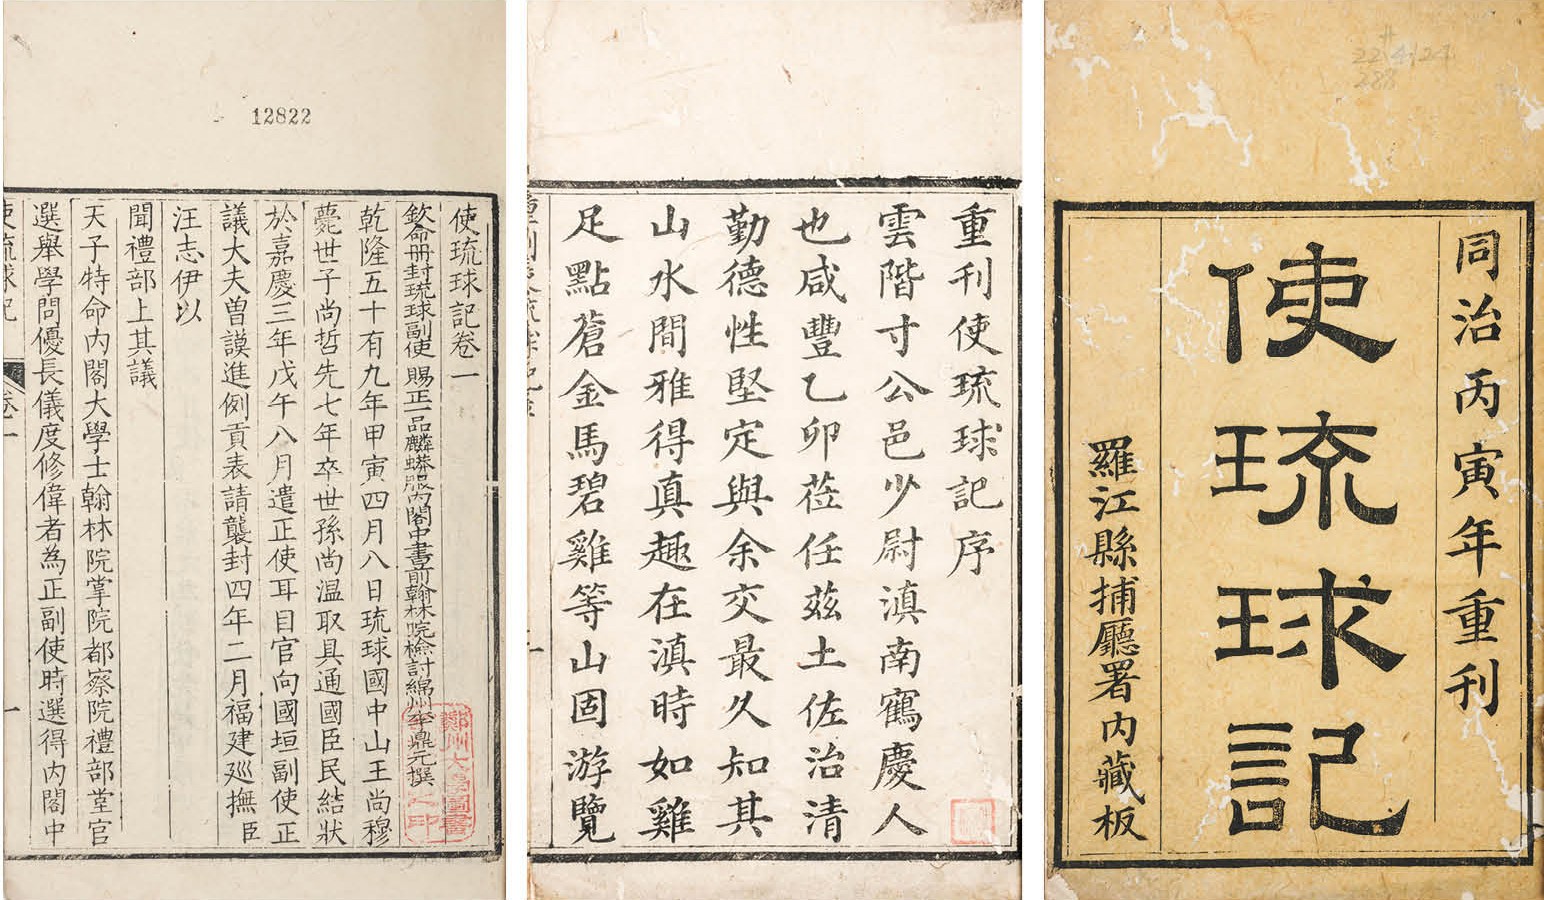 同治丙寅年重刊
使琉球記
羅江縣捕廳署內藏板
22 4124
288
重刊使琉球記序
雲階寸公邑少尉滇南鶴慶人
也咸豐乙卯莅任茲土佐治清
勤德性堅定與余交最久知其
山水間雅得真趣在滇時如雞
足點蒼金馬碧雞等山固游覽
12822
使琉球記卷一
欽命册封琉球副使 賜正一品麟蟒服內閣中書前翰林院檢討綿州李鼎元撰
乾隆五十有九年甲寅四月八日琉球國中山王尚穆
薨世子尚哲先七年卒世孫尚温取具通國臣民結狀
於嘉慶三年戊午八月遣正使耳目官向國垣副使正
議大夫曾謨進例貢表請襲封四年二月福建廵撫臣
汪志伊以
聞禮部上其議
天子特命內閣大學士翰林院掌院都察院禮部堂官
選舉學問優長儀度修偉者為正副使時選得內閣中
使琉球記 卷一 一
鄭州大學圖書